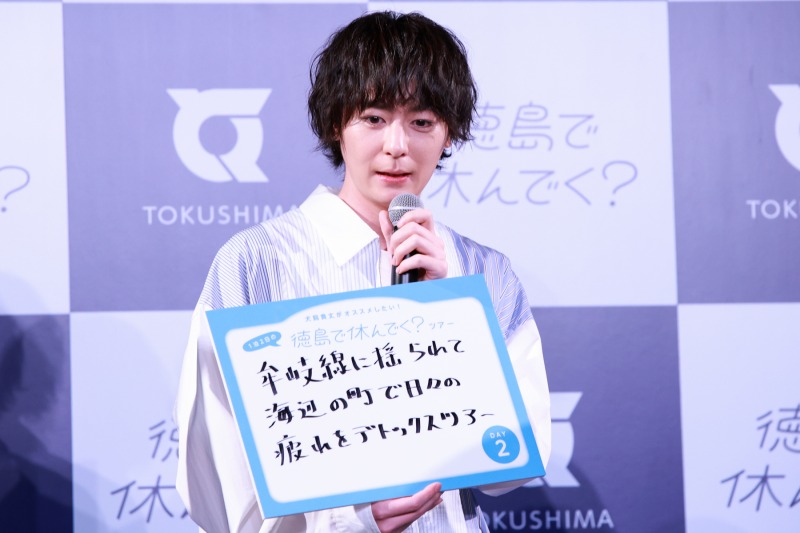 TOKUSHIMA
徳島で
休んでく?
TOKUS
徳島で休んでく?ツアー
1泊2日の
牟岐線に揺られて
海辺の町で日々の
疲れをデトックスツアー
DAY
2
徳
休ん
休んで
TOKUSHIMA